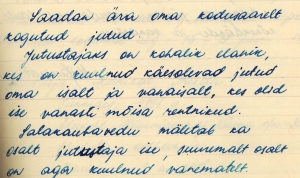 Saadan ära oma kodusaarelt
kogutud jutud
Jutustajaks on kohalik elanik,
kes on kuulnud käesolevad jutud
oma isalt ja vanaisalt, kes olid
ise vanasti mõisa rentnikud.
Salakaubavedu mäletab ka
osalt jutustaja ise, suuremalt osalt
on aga kuulnud vanematelt.